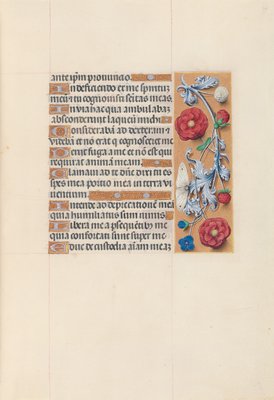 ante ipm pronuncio.
In deficiendo ex me spiritum
meū: tu cognovisti semitas meas.
In via hac qua ambulabam
absconderunt laqueū michi.
Considerabā ad dexteram: et
videbā et nō erat q cognosceret me
Periit fuga a me et nō est qui
requirat animā meam.
Clamavi ad te dn̄e dixi tu es
spes mea portio mea in terra vi
ventium.
Intende ad deprecationē meā
quia humiliatus sum nimis.
Libera me a psequētib; me
quia confortati sunt super me
Educ de custodia aīam meā